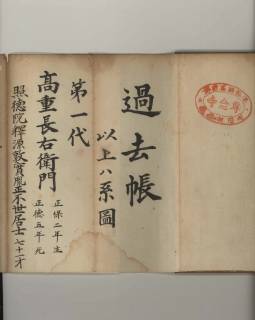 過去帳
以上八系圖
第一代
高重長右衛門
正保二年生
正德五年元
照德院釋源敦實胤正不世居士七十一才